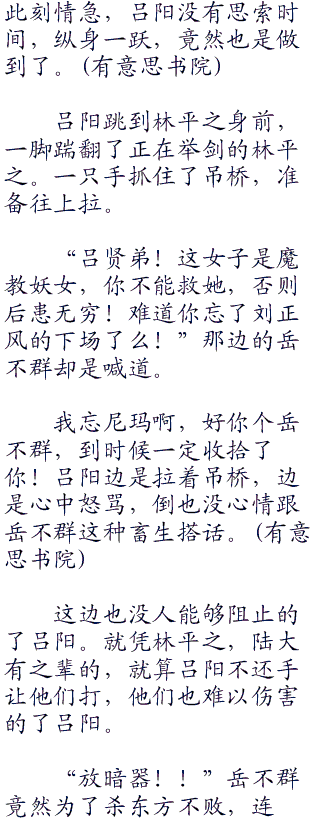 此刻情急，吕阳没有思索时
间，纵身一跃，竟然也是做
到了。(有意思书院)
吕阳跳到林平之身前，
一脚踹翻了正在举剑的林平
之。一只手抓住了吊桥，准
备往上拉。
“吕贤弟！这女子是魔
教妖女，你不能救她，否则
后患无穷！难道你忘了刘正
风的下场了么！”那边的岳
不群却是喊道。
我忘尼玛啊，好你个岳
不群，到时候一定收拾了
你！吕阳边是拉着吊桥，边
是心中怒骂，倒也没心情跟
岳不群这种畜生搭话。(有意
思书院)
这边也没人能够阻止的
了吕阳。就凭林平之，陆大
有之辈的，就算吕阳不还手
让他们打，他们也难以伤害
的了吕阳。
“放暗器！！”岳不群
竟然为了杀东方不败，连